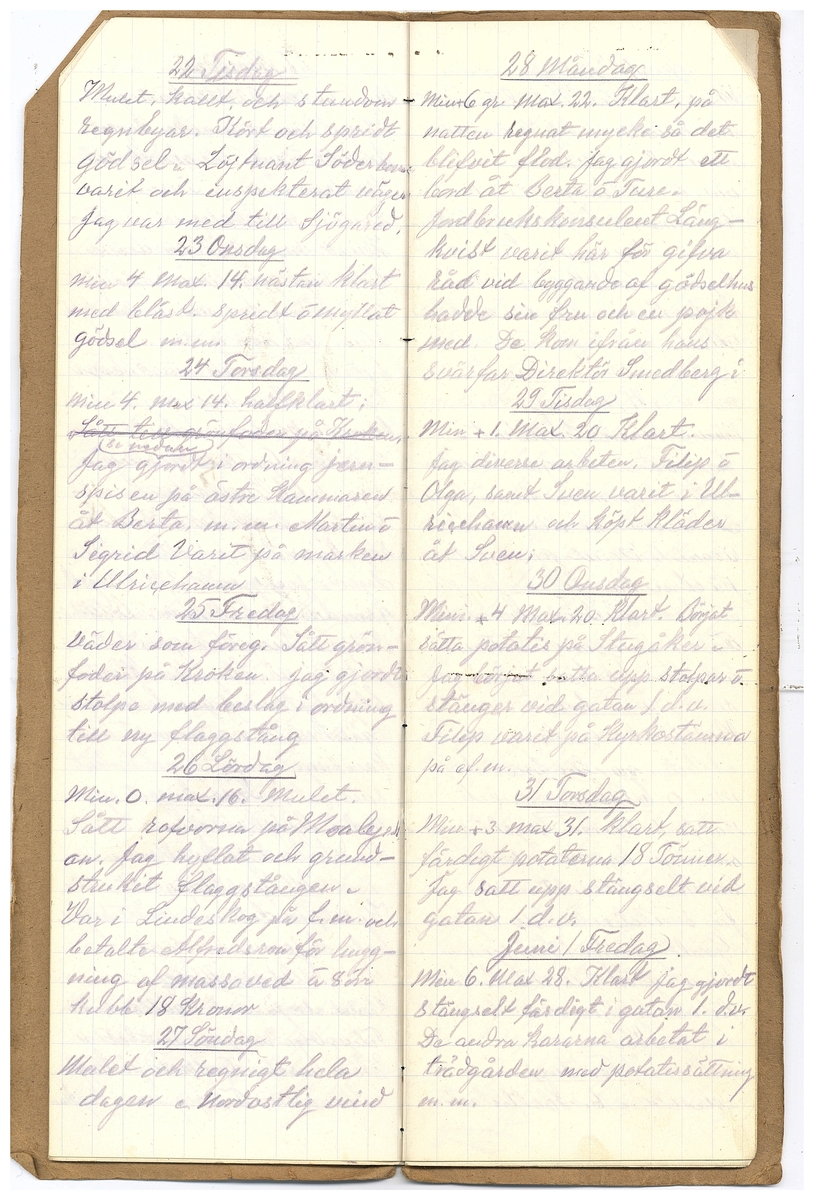 22 Tisdag
Mulet, kallt, och stundom
regnbyar. Kört och spridt
gödsel. Löjtnant Söderbom
varit och inspekterat vägen
jag var med till Sjögared.
23 Onsdag
min 4 max. 14. nästan klart
med blåst. spridt o myllat
gödsel m.m.
24 Torsdag
Min 4. max 14. halfklart;
Sått till grönfoder på Kroken.
(se nedan)
Jag gjordt i ordning jern-
spisen på östre Kammaren
åt Berta. m.m. Martin o
Sigrid Varit på marken
i Ulricehamn
25 Fredag
väder som föreg. Sått grön-
foder på Kroken. jag gjordt
stolpe med beslag i ordning
till ny flaggstång
26 Lördag
Min. 0. max. 16. Mulet.
Sått rofvorna på
an. Jag hyflat och grund-
strukit flaggstången.
Var i Lindeskog på f.m. och
betalte Alfredsson för hugg-
ning af massaved à 8 öre
kubb 18 Kronor
27 Söndag
Mulet och regnigt hela
dagen. Nordostlig vind
28 Måndag
Min+6 gr. Max. 22. Klart, på
natten regnat mycke så det
blifvit flod. Jag gjordt ett
bord åt Berta o Ture.
Jordbrukskonsulent Läng-
kvist varit här för gifva
Råd vid byggande af gödselhus
hadde sin fru och en pojk
med. De kom ifrån hans
svärfar Direktör Smedberg i
29 Tisdag
Min +1. Max. 20 Klart.
Jag diverse arbeten. Filip o
Olga, samt Sven varit i Ul-
ricehamn och köpt kläder
åt Sven;
30 Onsdag
Min. +4 Max. 20 Klart. Börjat
sätta potatis på Stugåker.
Jag börjat sätta upp stolpar o
stänger vid gatan 1 d.v.
Filip varit på Kyrkostämma
på ef.m.
31 Torsdag
Min +3 max 31. Klart, satt
färdigt potaterna 18 Tönner.
Jag satt upp stängselt vid
gatan 1. d.v.
Juni 1 Fredag.
Min 6. Max 28. Klart jag gjordt
stängselt färdigt i gatan 1. d.v.
De andra kararna arbetat i
trädgården med potatissättning
m.m.